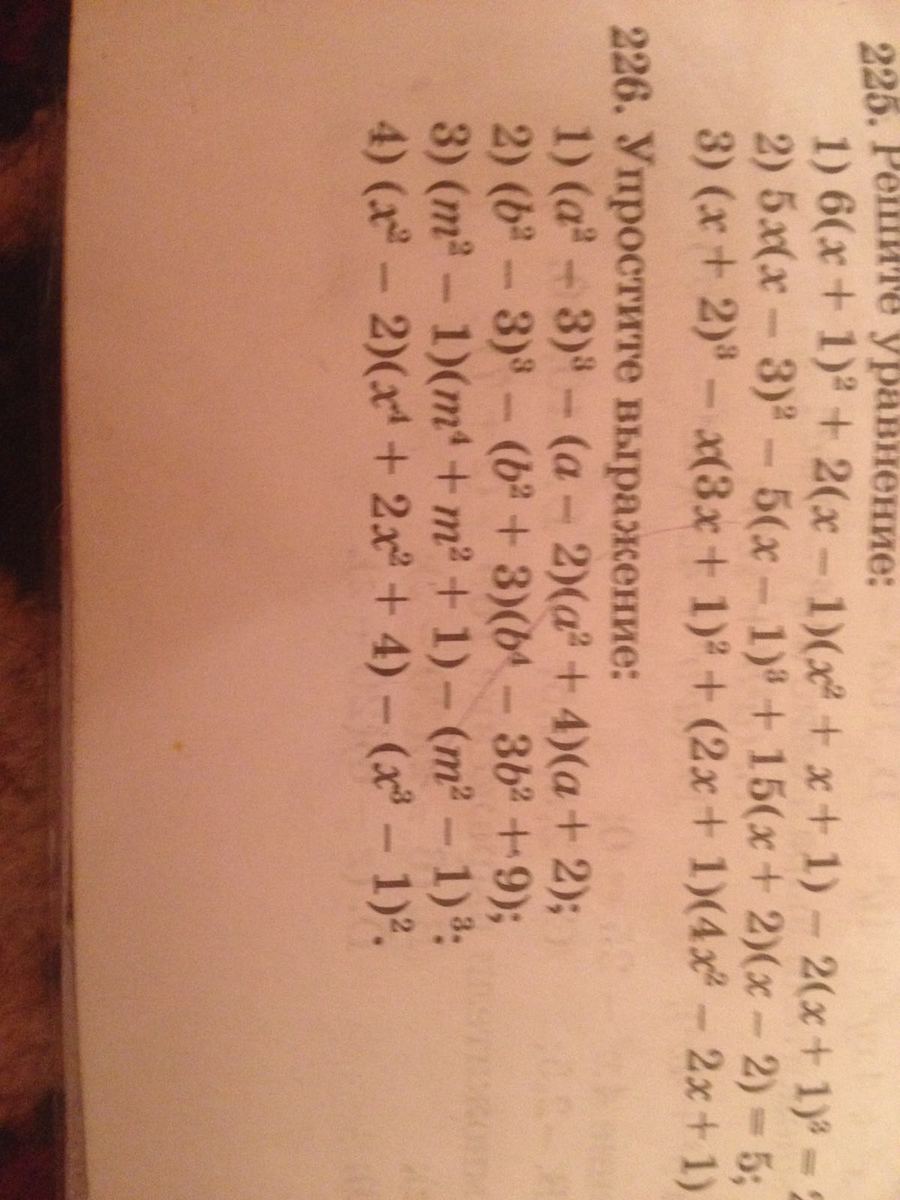 225. Решите уравнение:
1) 6(x + 1)² + 2(x − 1)(x² + x + 1) − 2(x + 1)³ =
2) 5x(x − 3)² − 5(x − 1)³ + 15(x + 2)(x − 2) = 5;
3) (x + 2)³ − x(3x + 1)² + (2x + 1)(4x² − 2x + 1)
226. Упростите выражение:
1) (a² + 3)³ − (a − 2)(a² + 4)(a + 2);
2) (b² − 3)³ − (b² + 3)(b⁴ − 3b² + 9);
3) (m² − 1)(m⁴ + m² + 1) − (m² − 1)³;
4) (x² − 2)(x⁴ + 2x² + 4) − (x³ − 1)².